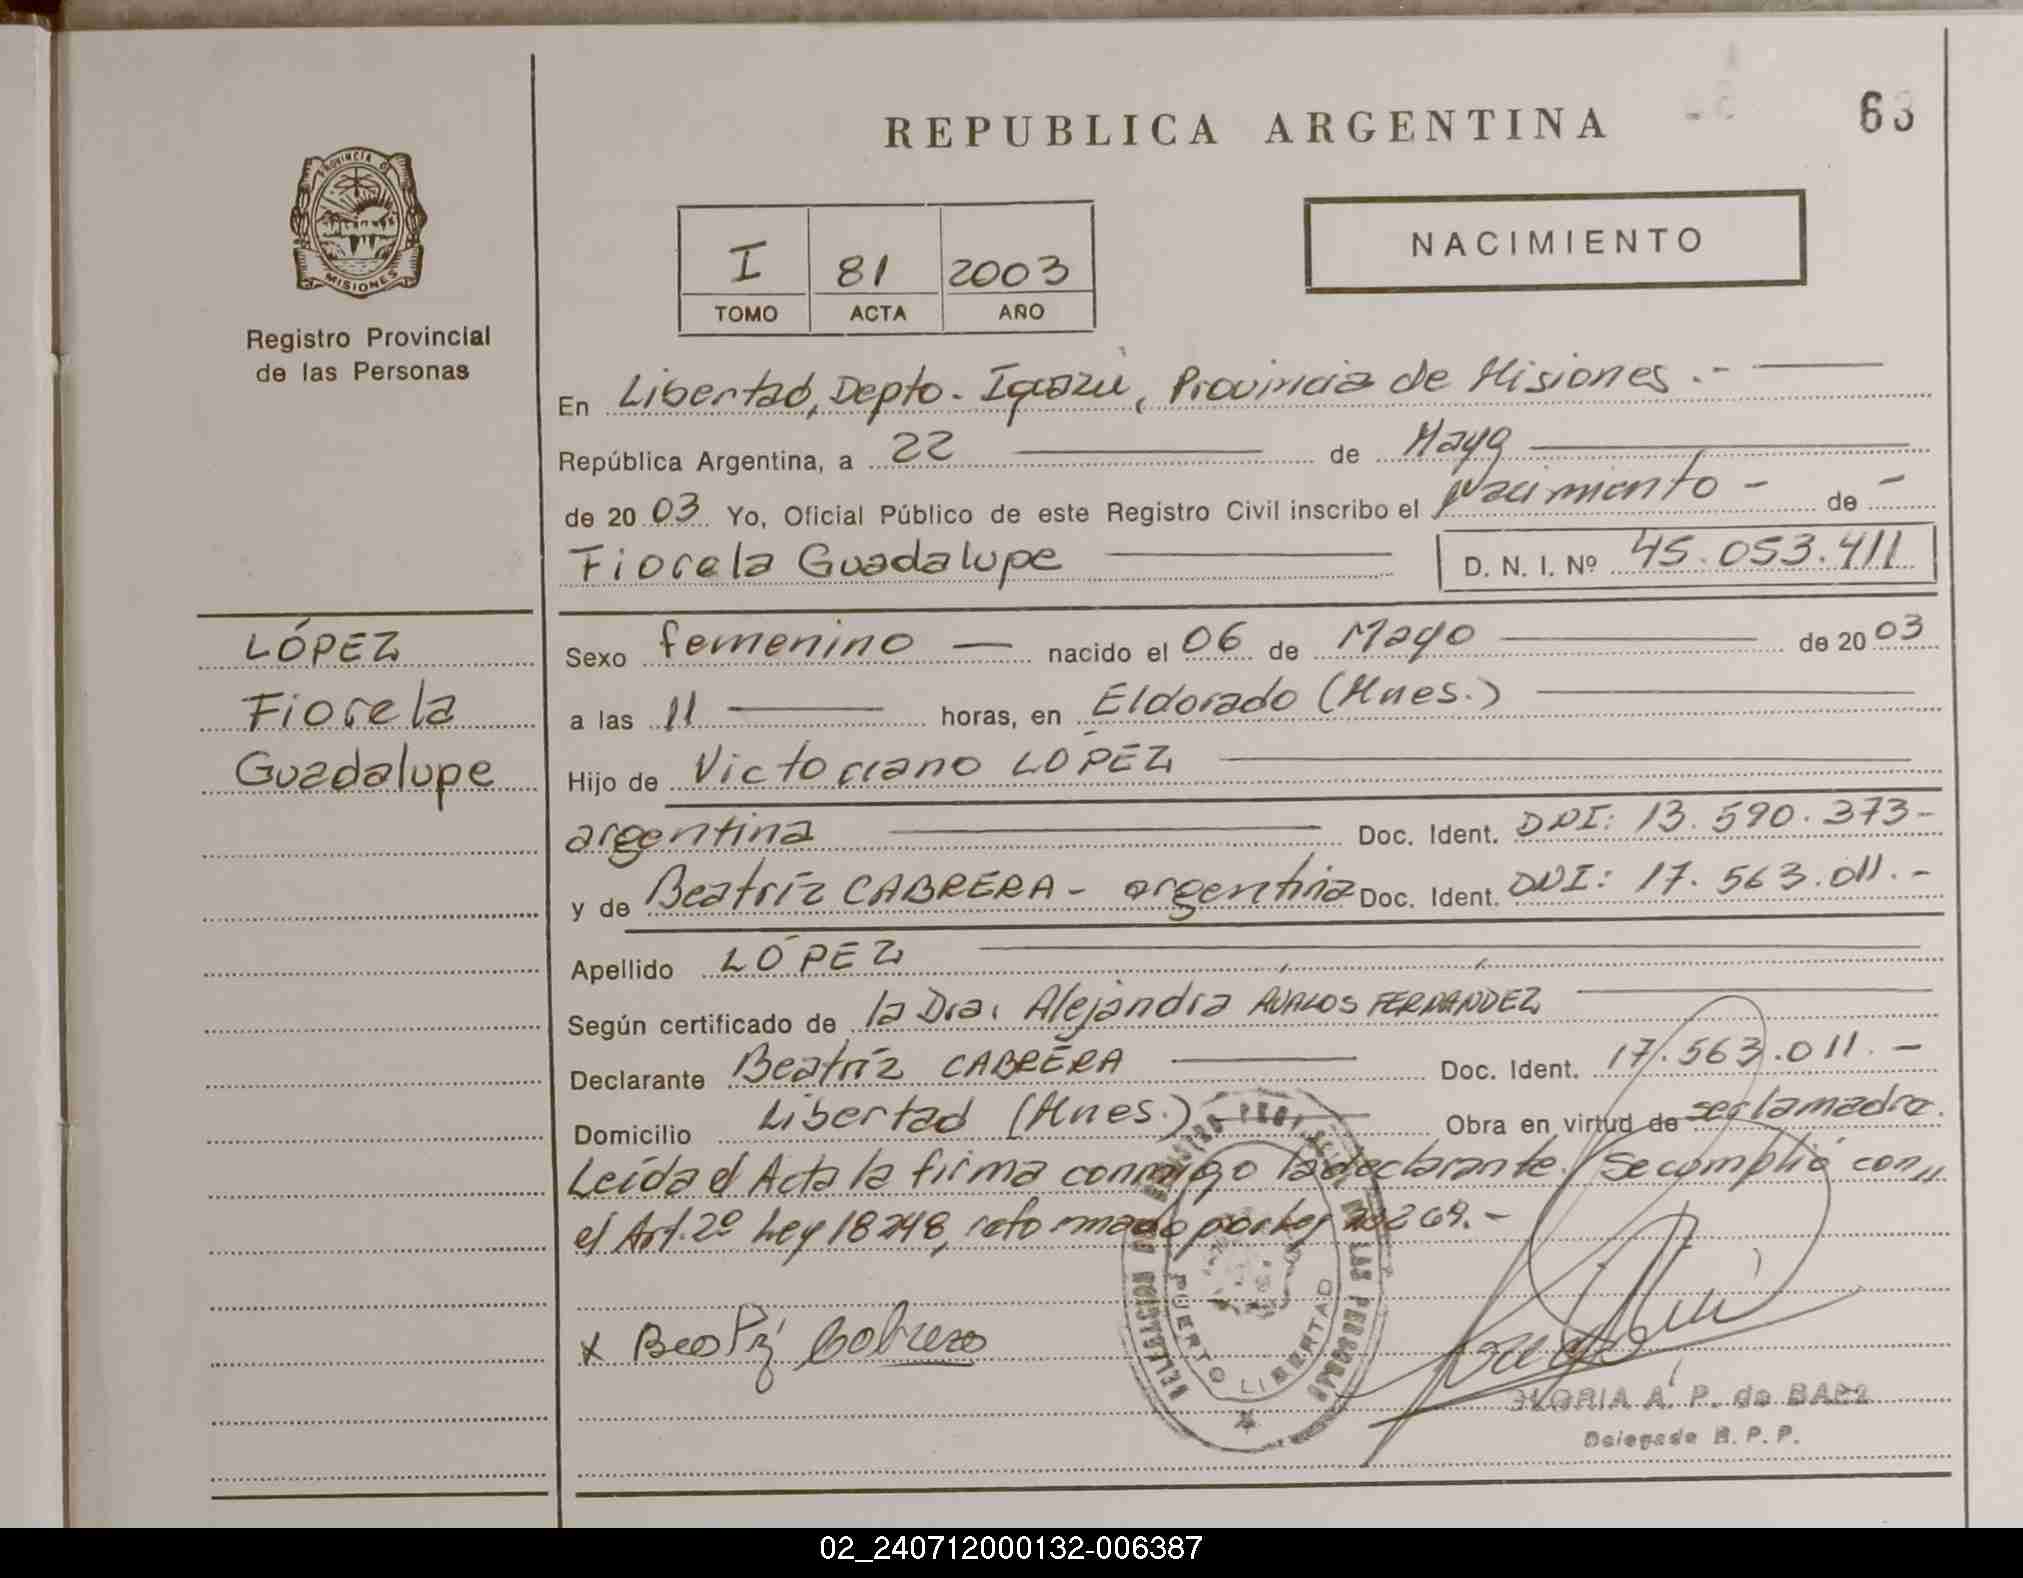 REPUBLICA ARGENTINA
63
PROVINCIA DE
MISIONES
Registro Provincial
de las Personas
I 81 2003
TOMO ACTA AÑO
NACIMIENTO
En Libertad, Depto. Iguazú, Provincia de Misiones.-
República Argentina, a 22 de Mayo
de 2003 Yo, Oficial Público de este Registro Civil inscribo el Nacimiento - de -
Fiorela Guadalupe D. N. I. Nº 45.053.411
LÓPEZ
Fiorela
Guadalupe
Sexo femenino — nacido el 06 de Mayo de 2003
a las 11 horas, en Eldorado (Mnes.)
Hijo de Victoriano LÓPEZ
argentina Doc. Ident. DNI: 13.590.373-
y de Beatríz CABRERA - argentina Doc. Ident. DNI: 17.563.011.-
Apellido LÓPEZ
Según certificado de la Dra. Alejandra AVALOS FERNANDEZ
Declarante Beatríz CABRERA Doc. Ident. 17.563.011.-
Domicilio Libertad (Mnes.) Obra en virtud de ser la madre.
Leída el Acta la firma conmigo la declarante. Se cumplió con,,
el Art. 2º Ley 18248, reformado por ley 269.-
x Beatriz Cabrera
DELEGACION DEL REGISTRO PROVINCIAL DE LAS PERSONAS
PUERTO LIBERTAD
GLORIA A. P. de BAEZ
Delegada R. P. P.
02_240712000132-006387